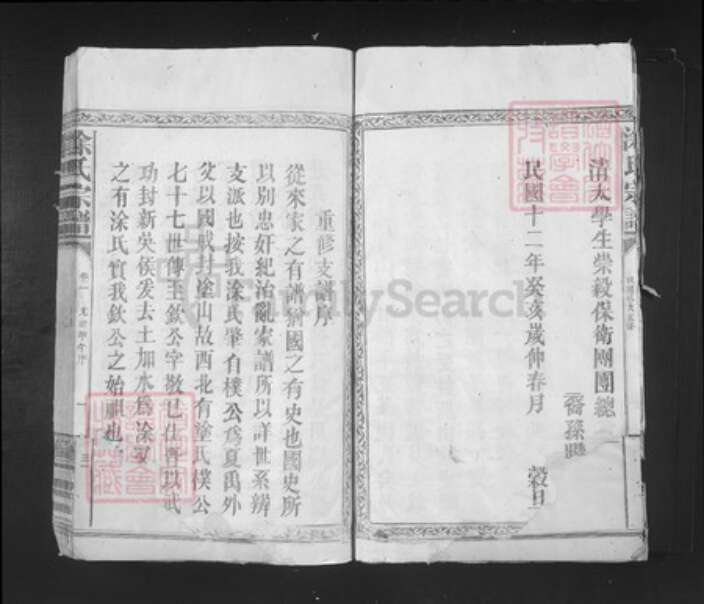 涂氏宗譜
清太學生崇穀保衛團團總
裔孫
民國十二年癸亥歲仲春月 穀旦
重修支譜序
從來家之有譜猶國之有史也國史所
以別忠奸紀治亂家譜所以詳世系辨
支派也按我涂氏肇自樸公爲夏禹外
父以國戚封塗山故西北有塗氏樸公
七十七世傳至欽公字敬已仕晉以武
功封新吳侯爰去土加水爲涂家
之有涂氏實我欽公之始祖也
涂氏宗譜
卷一
三
FamilySearch